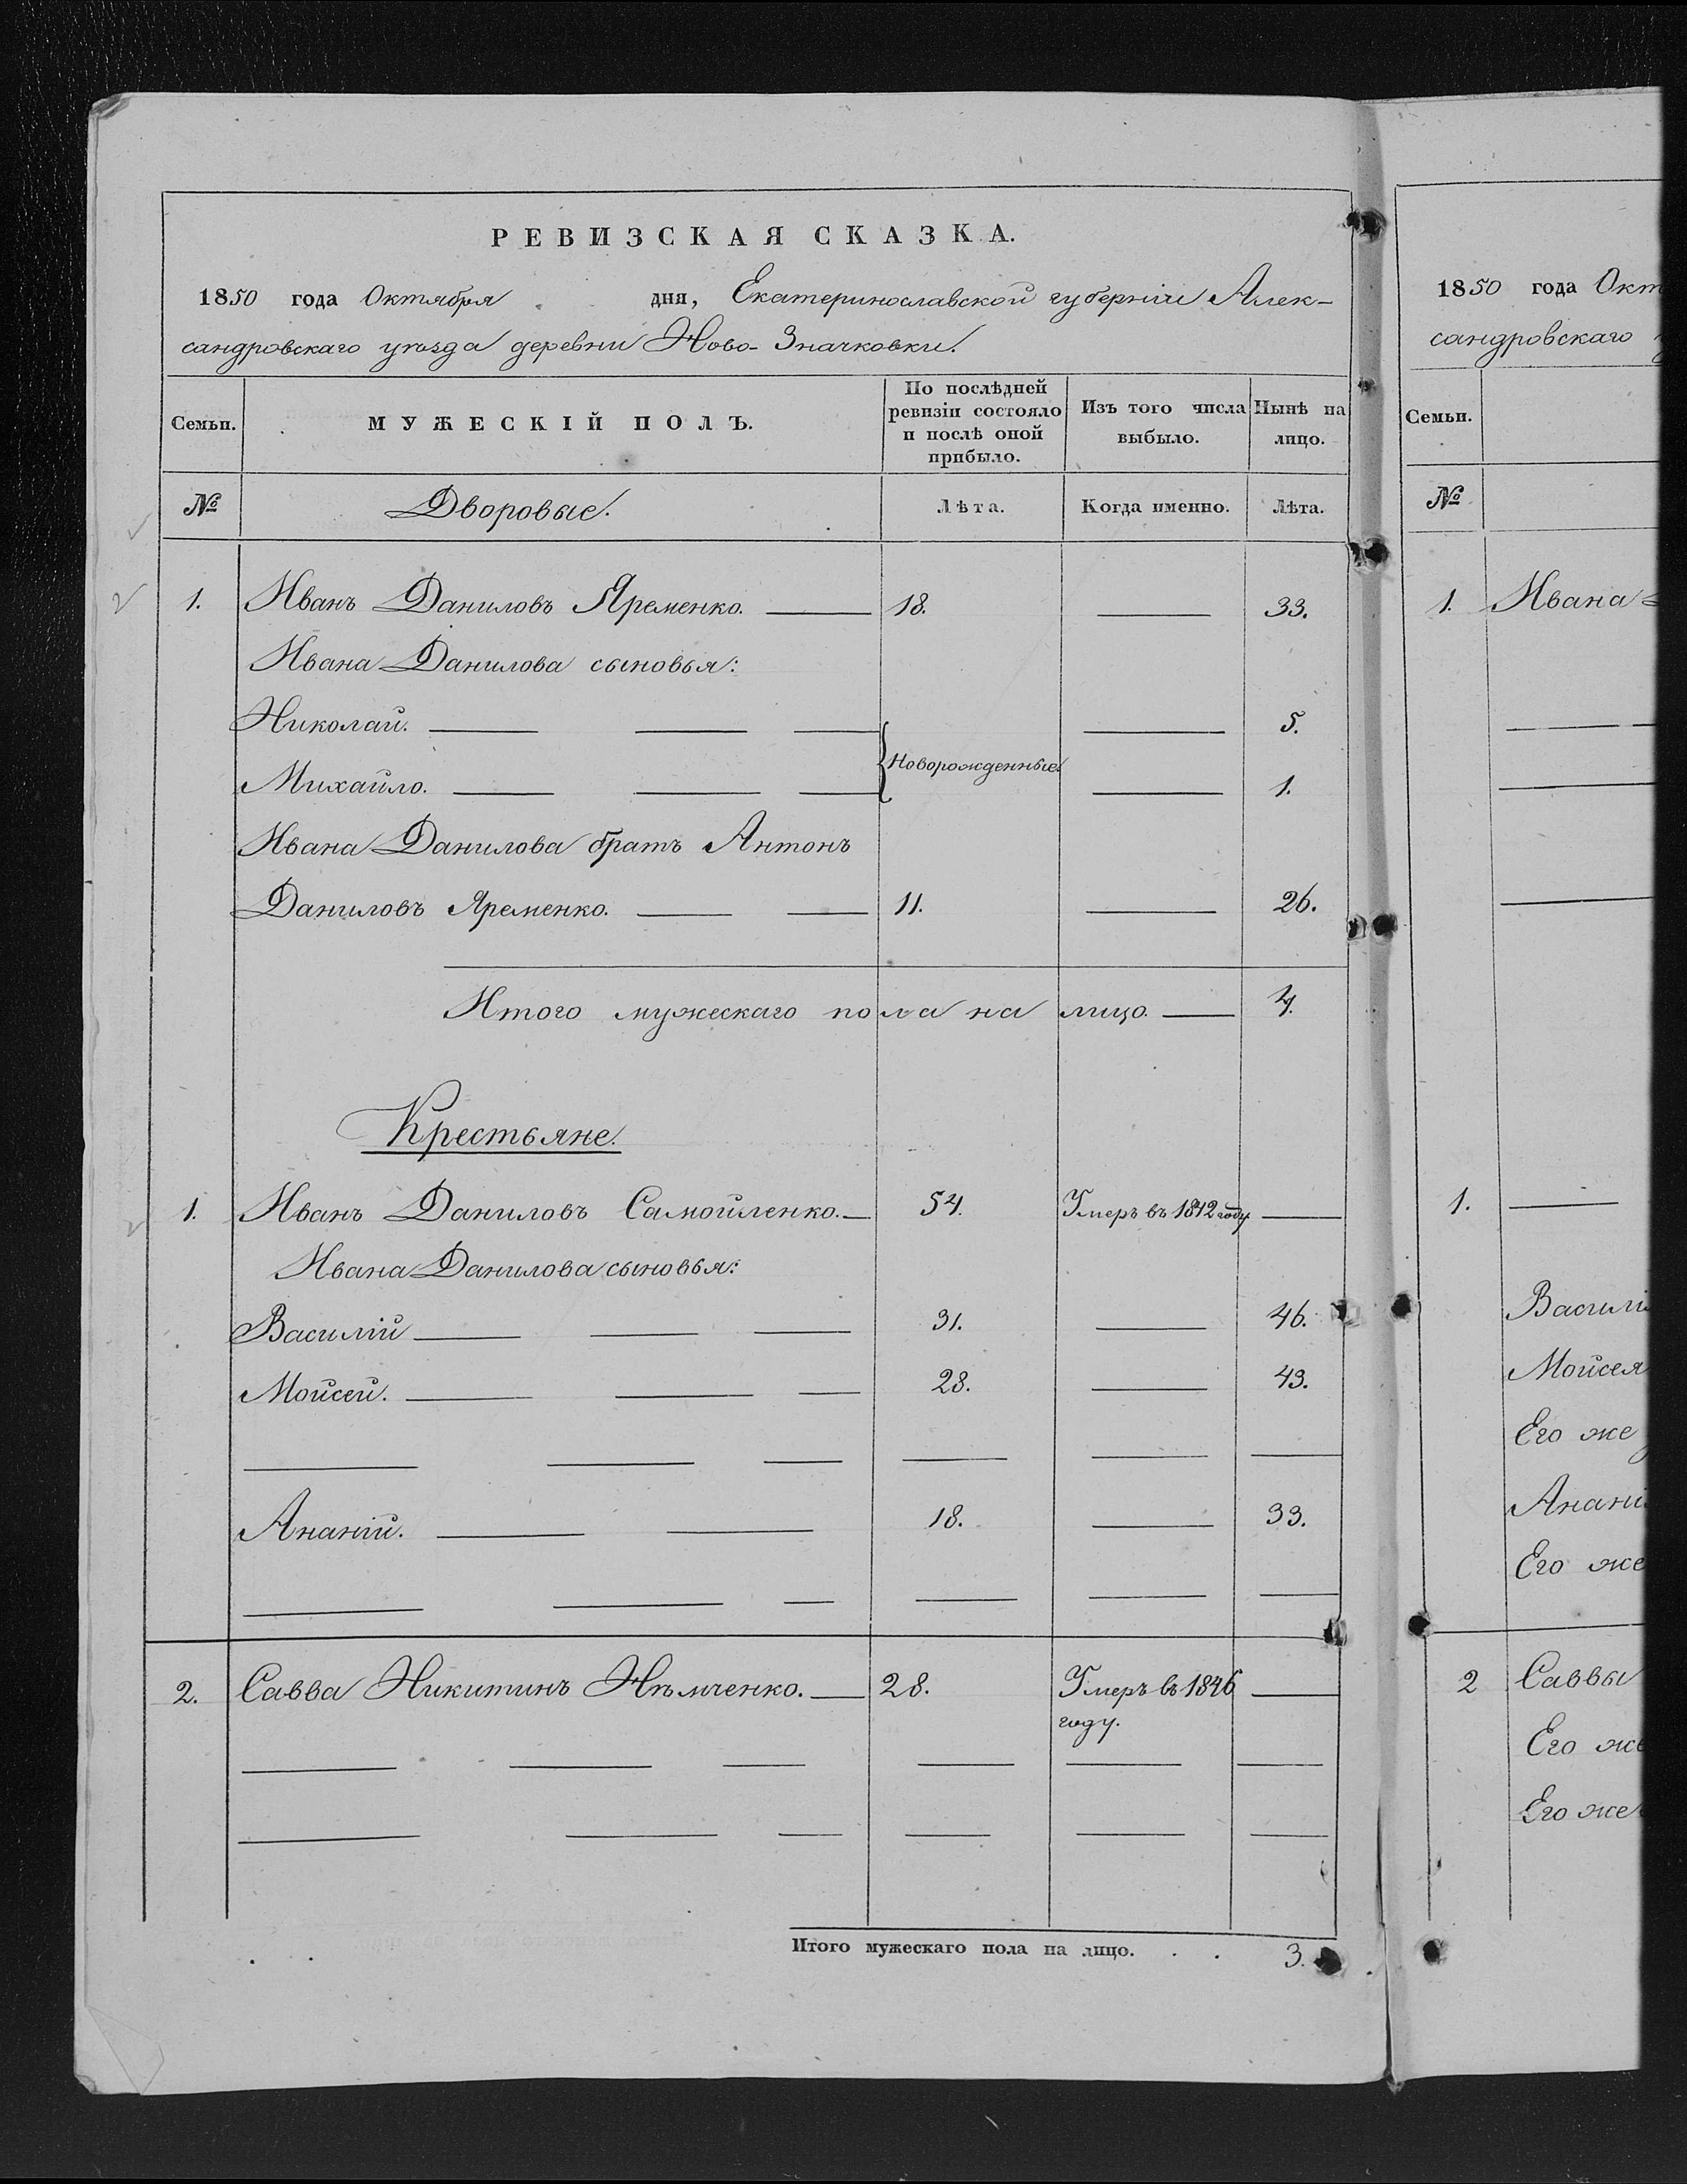 РЕВИЗСКАЯ СКАЗКА.
1850 года Октября дня, Екатеринославской губернiи Алек-
сандровскаго уѣзда деревни Ново-Значковки.
Семьи. МУЖЕСКІЙ ПОЛЪ. По послѣдней ревизіи состояло и послѣ оной прибыло. Изъ того числа выбыло. Нынѣ на лицо.
№ Дворовые. Лѣта. Когда именно. Лѣта.
1. Иванъ Даниловъ Яременко. 18. 33.
Ивана Данилова сыновья:
Николай. 5.
Новорожденные.
Михайло. 1.
Ивана Данилова братъ Антонъ
Даниловъ Яременко. 11. 26.
Итого мужескаго пола на лицо. 4.
Крестьяне.
1. Иванъ Даниловъ Самойленко. 54. Умеръ въ 1842 году
Ивана Данилова сыновья:
Василій 31. 46.
Мойсей. 28. 43.
Ананій. 18. 33.
2. Савва Никитинъ Нѣмченко. 28. Умеръ въ 1846
году.
Итого мужескаго пола на лицо. . . 3.
1850 года Окт
сандровскаго
Семьи.
№
1. Ивана
1.
Василі
Мойсея
Его же
Анані
Его же
2 Саввы
Его же
Его же